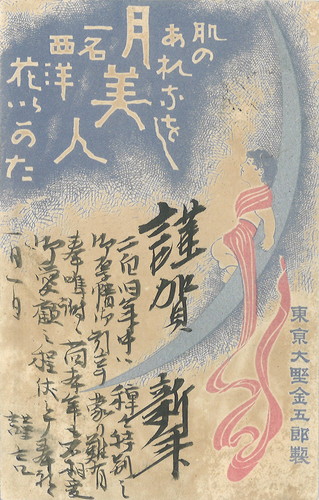 肌の
あれなをし
月美人
一名
西洋
謹賀新年
旧年中は種々特別之
御引立を蒙り難有
尚本年も不相変
御愛顧之程伏て奉希
謹言
一月一日
東京大墅金五郎製